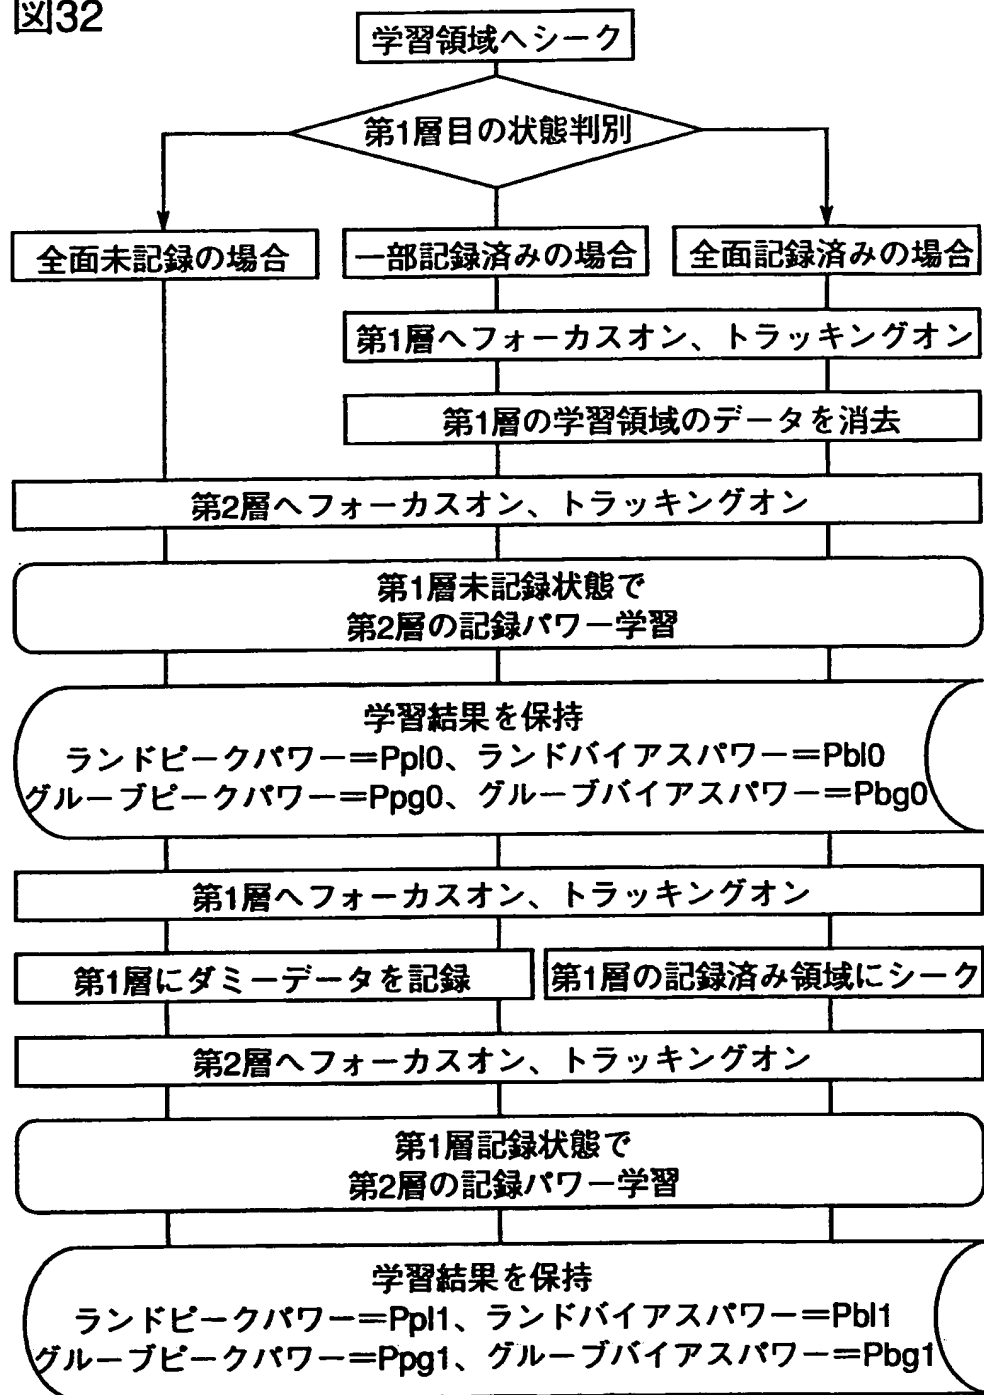 図32
学習領域へシーク
第1層目の状態判別
全面未記録の場合
一部記録済みの場合
全面記録済みの場合
第1層へフォーカスオン、トラッキングオン
第1層の学習領域のデータを消去
第2層へフォーカスオン、トラッキングオン
第1層未記録状態で
第2層の記録パワー学習
学習結果を保持
ランドピークパワー=Ppl0、ランドバイアスパワー=Pbl0
グルーブピークパワー=Ppg0、グルーブバイアスパワー=Pbg0
第1層へフォーカスオン、トラッキングオン
第1層にダミーデータを記録
第1層の記録済み領域にシーク
第2層へフォーカスオン、トラッキングオン
第1層記録状態で
第2層の記録パワー学習
学習結果を保持
ランドピークパワー=Ppl1、ランドバイアスパワー=Pbl1
グルーブピークパワー=Ppg1、グルーブバイアスパワー=Pbg1